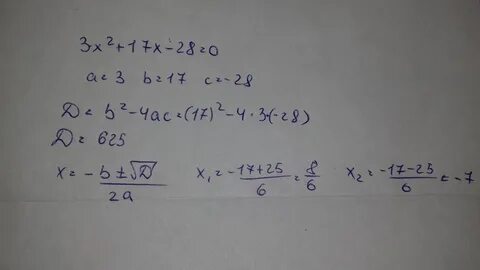 3x²+17x-28=0
a=3 b=17 c=-28
D=b²-4ac=(17)²-4·3·(-28)
D=625
x=-b±√D/2a x₁=-17+25/6=8/6 x₂=-17-25/6=-7